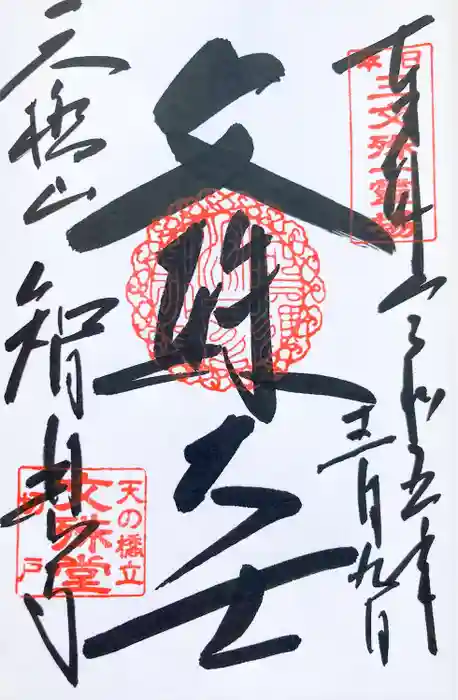 奉拝
令和五年
十二月九日
日本
三文殊一霊場
文殊大士
天橋山
智恩寺
天の橋立
文殊堂
切戸